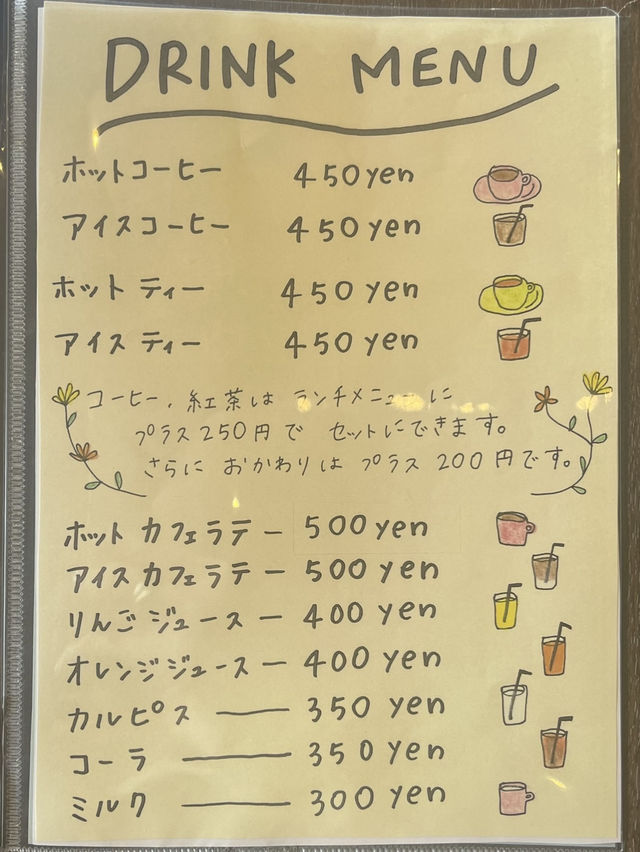 DRINK MENU
ホットコーヒー 450yen
アイスコーヒー 450yen
ホット ティー 450yen
アイス ティー 450yen
コーヒー、紅茶は ランチメニューに
プラス250円で セットにできます。
さらに おかわりは プラス 200円です。
ホット カフェラテ ー 500yen
アイス カフェラテ ー 500yen
りんごジュース ー 400yen
オレンジジュース ー 400yen
カルピス ― 350yen
コーラ ― 350yen
ミルク ― 300yen